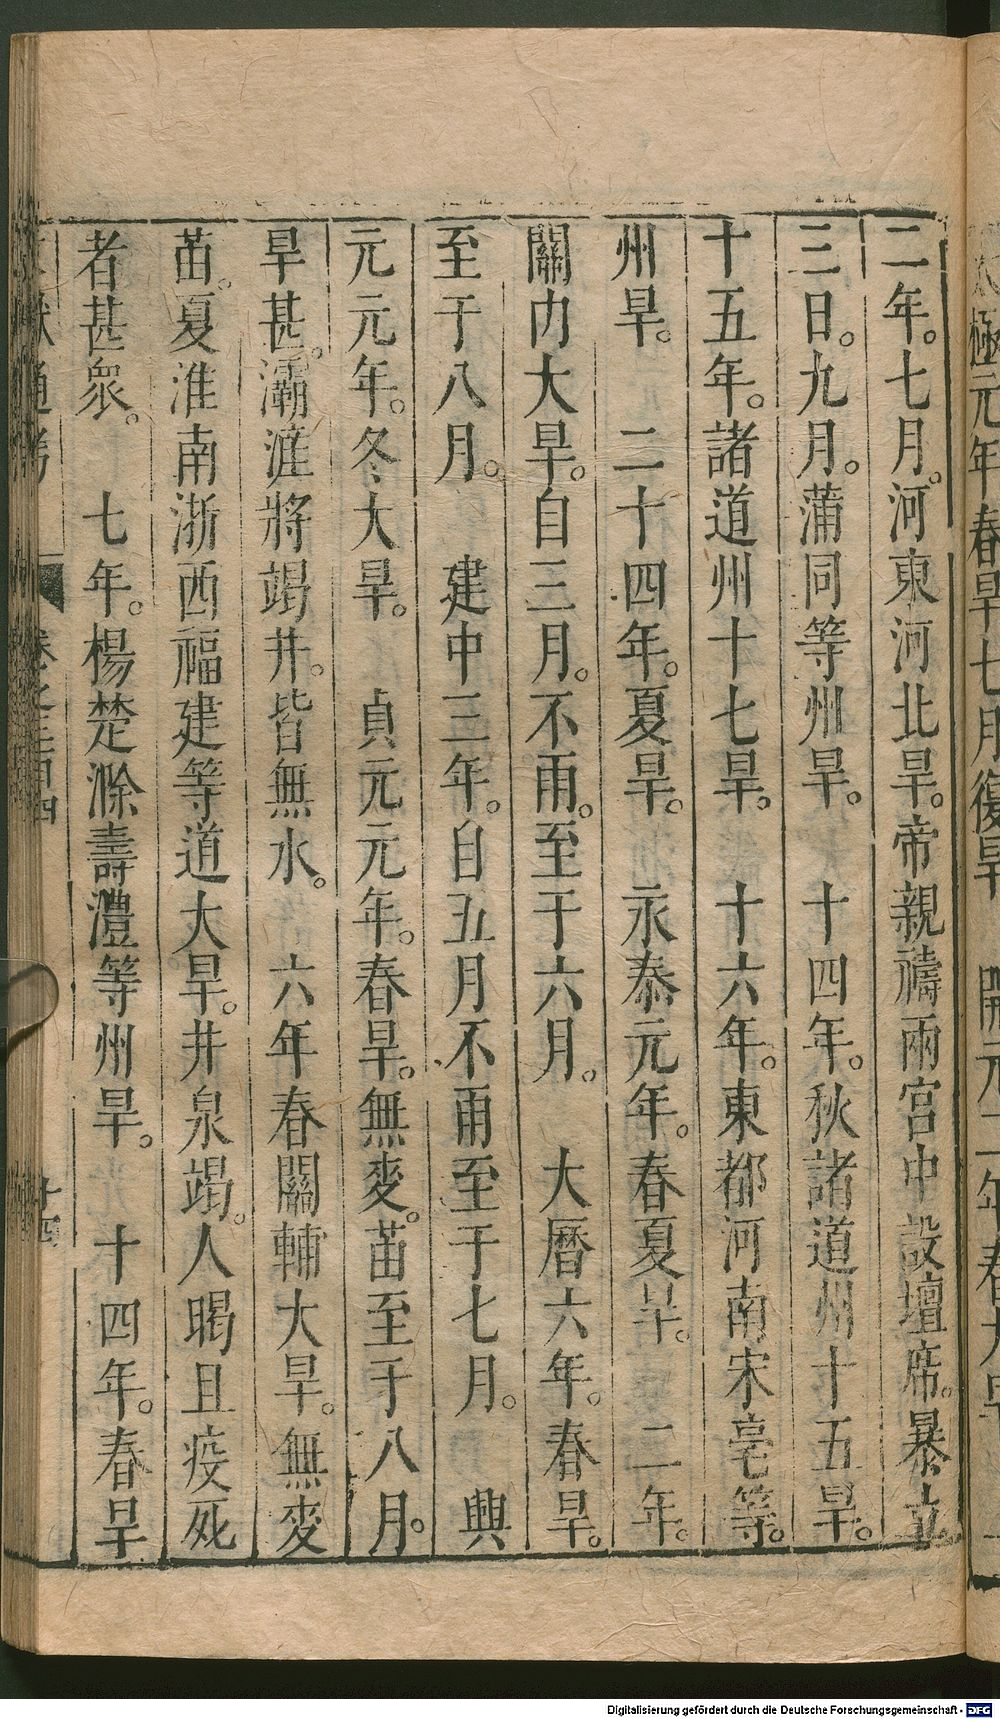 極元年春旱七月復旱　開元二年春大旱
二年。七月。河東河北旱。帝親禱兩宮中設壇席。暴立
三日。九月。蒲同等州旱。　十四年。秋諸道州十五旱。
十五年。諸道州十七旱。　十六年。東都河南宋亳等。
州旱。　二十四年。夏旱。　永泰元年。春夏旱。　二年。
關內大旱。自三月。不雨。至于六月。　大曆六年。春旱。
至于八月。　建中三年。自五月不雨至于七月。　興
元元年。冬大旱。　貞元元年。春旱。無麥。苗至于八月。
旱甚。灞滻將竭井。皆無水。　六年春關輔大旱。無麥
苗。夏淮南浙西福建等道大旱。井泉竭。人暍且疫死
者甚衆。　七年。楊楚滁壽澧等州旱。　十四年。春旱
獻通考
Digitalisierung gefördert durch die Deutsche Forschungsgemeinschaft - DFG